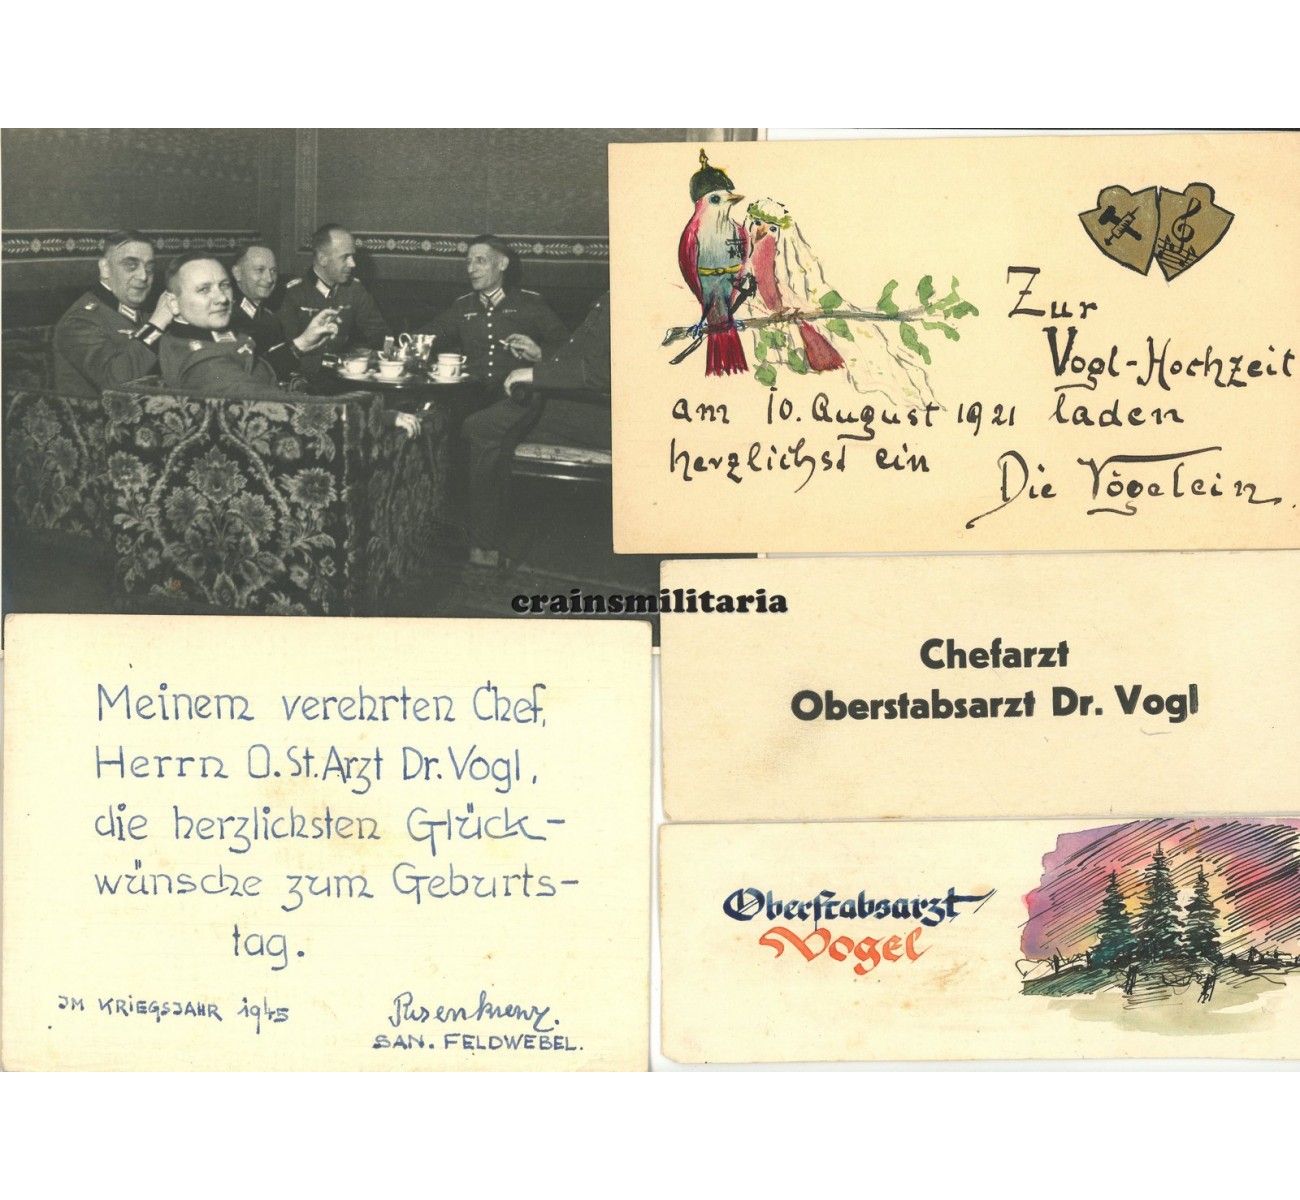 Zur
Vogl-Hochzeit
am 10. August 1921 laden
herzlichst ein
Die Vögelein.
crainsmilitaria
Chefarzt
Oberstabsarzt Dr. Vogl
Meinem verehrten Chef,
Herrn O.St.Arzt Dr. Vogl,
die herzlichsten Glück-
wünsche zum Geburts-
tag.
IM KRIEGSJAHR 1945
Rosenkrenz.
SAN. FELDWEBEL.
Oberstabsarzt
Vogel